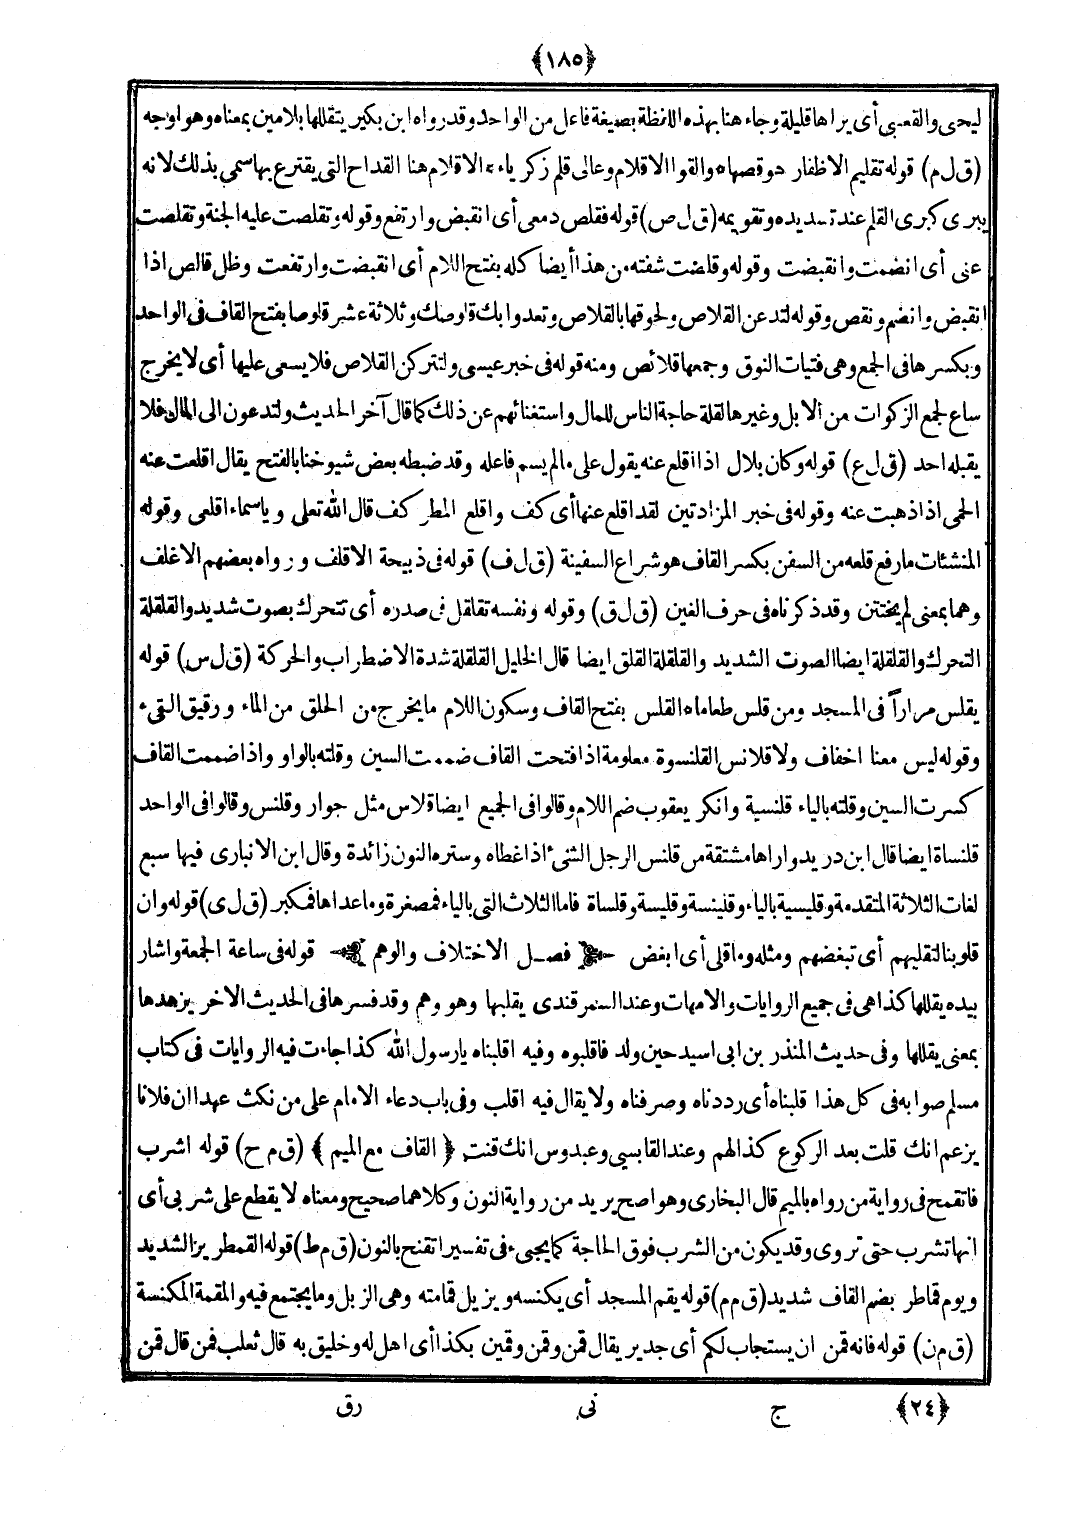 ﴿١٨٥﴾
ليحى والقعنبى أى يراها قليلة وجاء هنا بهذه اللفظة بصيغة فاعل من الواحد وقد رواه ابن بكير يتقللها بلامين بمعناه وهو اوجه
(ق ل م) قوله تقليم الاظفار هو قصها ٥ والقوا الاقلام وعالى قلم زكرياء ٥ الاقلام هنا القداح التى يقترع بها سمى بذلك لانه
يبرى كبرى القلم عند تسديده وتقويمه (ق ل ص) قوله فقلص دمعى أى انقبض وارتفع وقوله وتقلصت عليه الجنة وتقلصت
عنى أى انضمت وانقبضت وقوله وقلصت شفته من هذا أيضا كله بفتح اللام أى انقبضت وارتفعت وظل قالص اذا
انقبض وانضم ونقص وقوله لتدعن القلاص ولحوقها بالقلاص وتعدوا بك قلوصك وثلاثة عشر قلوصا بفتح القاف فى الواحد
وبكسرها فى الجمع وهى فتيات النوق وجمعها قلائص ومنه قوله فى خبر عيسى ولتتركن القلاص فلا يسعى عليها أى لا يخرج
ساع لجمع الزكوات من الابل وغيرها لقلة حاجة الناس للمال واستغنائهم عن ذلك كما قال آخر الحديث ولتدعون الى المال فلا
يقبله احد (ق ل ع) قوله وكان بلال اذا اقلع عنه يقول على مالم يسم فاعله وقد ضبطه بعض شيوخنا بالفتح يقال اقلعت عنه
الحمى اذا ذهبت عنه وقوله فى خبر المزادتين لقد اقلع عنها أى كف واقلع المطر كف قال الله تعلى وياسماء اقلعى وقوله
المنشئات ما رفع قلعه من السفن بكسر القاف هو شراع السفينة (ق ل ف) قوله فى ذبيحة الاقلف ورواه بعضهم الاغلف
وهما بمعنى لم يختتن وقد ذكرناه فى حرف الغين (ق ل ق) وقوله ونفسه تقلقل فى صدره أى تتحرك بصوت شديد والقلقلة
التحرك والقلقلة ايضا الصوت الشديد والقلقلة القلق ايضا قال الخليل القلقلة شدة الاضطراب والحركة (ق ل س) قوله
يقلس مراراً فى المسجد ومن قلس طعاماه القلس بفتح القاف وسكون اللام ما يخرج من الحلق من الماء ورقيق القىء
وقوله ليس معنا اخفاف ولا قلانس القلنسوة معلومة اذا فتحت القاف ضممت السين وقلته بالواو واذا ضممت القاف
كسرت السين وقلته بالياء قلنسية وانكر يعقوب ضم اللام وقالوا فى الجميع ايضا قلاس مثل جوار وقلنس وقالوا فى الواحد
قلنساة ايضا قال ابن دريد واراها مشتقة من قلنس الرجل الشئ اذا غطاه وستره النون زائدة وقال ابن الانبارى فيها سبع
لغات الثلاثة المتقدمة وقليسية بالياء وقلينسة وقليسة وقلساة فاما الثلاث التى بالياء فمصغرة وما عداها فمكبر (ق ل ى) قوله وان
قلوبنا لتقليهم أى تبغضهم ومثله وما قلى أى ابغض فصل الاختلاف والوهم قوله فى ساعة الجمعة واشار
بيده يقللها كذا هى فى جميع الروايات والامهات وعند السمرقندى يقلبها وهو وهم وقد فسرها فى الحديث الاخر يزهدها
بمعنى يقللها وفى حديث المنذر بن ابى اسيد حين ولد فاقلبوه وفيه اقلبناه يا رسول الله كذا جاءت فيه الروايات فى كتاب
مسلم صوابه فى كل هذا قلبناه أى رددناه وصرفناه ولا يقال فيه اقلب وفى باب دعاء الامام على من نكث عهدا ان فلانا
يزعم انك قلت بعد الركوع كذا لهم وعند القابسى وعبدوس انك قنت ﴿ القاف مع الميم ﴾ (ق م ح) قوله اشرب
فاتقمح فى رواية من رواه بالميم قال البخارى وهو اصح يريد من رواية النون وكلاهما صحيح ومعناه لا يقطع على شربى أى
انها تشرب حتى تروى وقد يكون من الشرب فوق الحاجة كما يجىء فى تفسير اتقنح بالنون (ق م ط) قوله القمطرير الشديد
ويوم قماطر بضم القاف شديد (ق م م) قوله يقم المسجد أى يكنسه ويزيل قمامته وهى الزبل وما يجتمع فيه والمقمة المكنسة
(ق م ن) قوله فانه قمن ان يستجاب لكم أى جدير يقال قمن وقمن وقمين بكذا أى اهل له وخليق به قال ثعلب فمن قال قمن
﴿٢٤﴾ ج نى رق